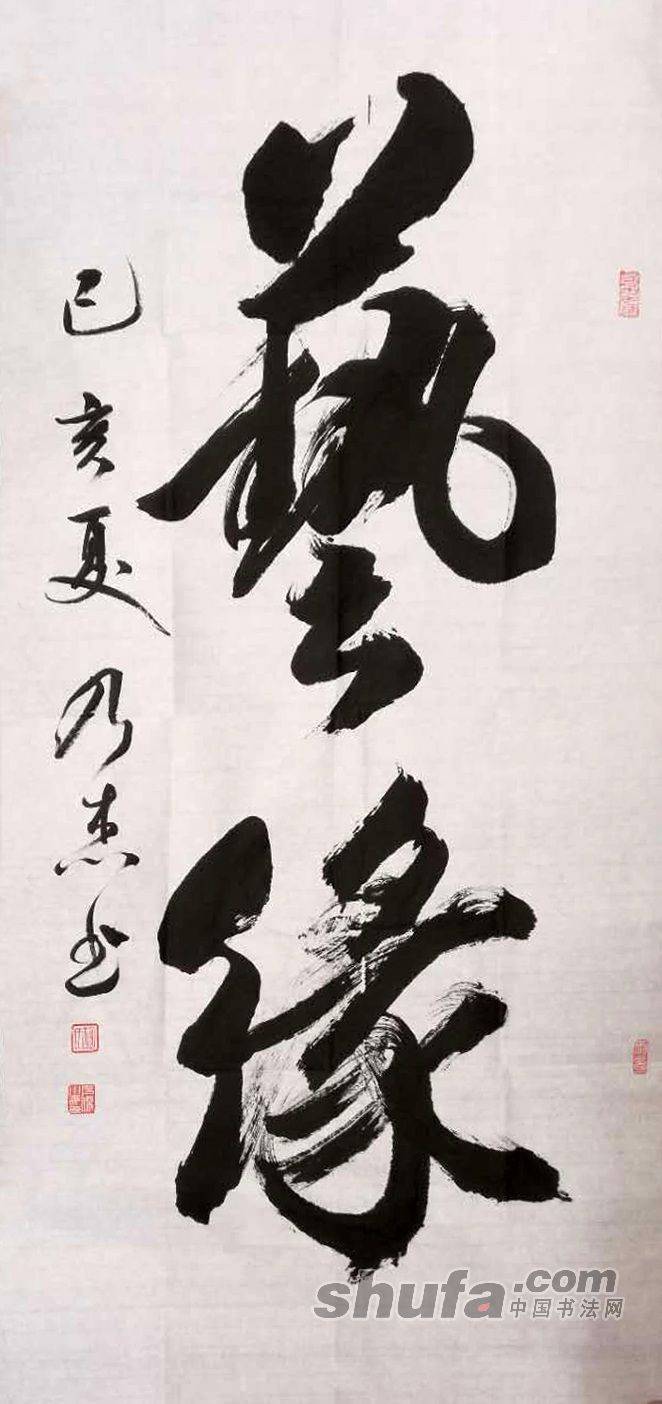 藝緣
己亥夏乃杰书
shufa.com
中国书法网